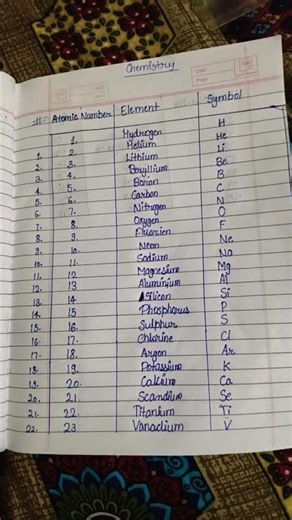 Chemistry
#= Atomic Number Element Symbol
1. Hydrogen H
1. 2. Helium He
2. 3. Lithium Li
3. 4. Beryllium Be
4. 5. Boron B
5. 6. Carbon C
6. 7. Nitrogen N
7. 8. Oxygen O
8. 9. Fluorien F
9. 10. Neon Ne
10. 11. Sodium Na
11. 12 Magnesium Mg
12. 13 Aluminium Al
13. 14 Silicon Si
14. 15. Phosphorus P
15. 16. Sulphur S
16. 17. Chlorine Cl
17. 18. Argon Ar
18. 19. Potassium K
19. 20. Calcium Ca
20. 21. Scandium Se
21. 22. Titanium Ti
22. 23 Vanadium V